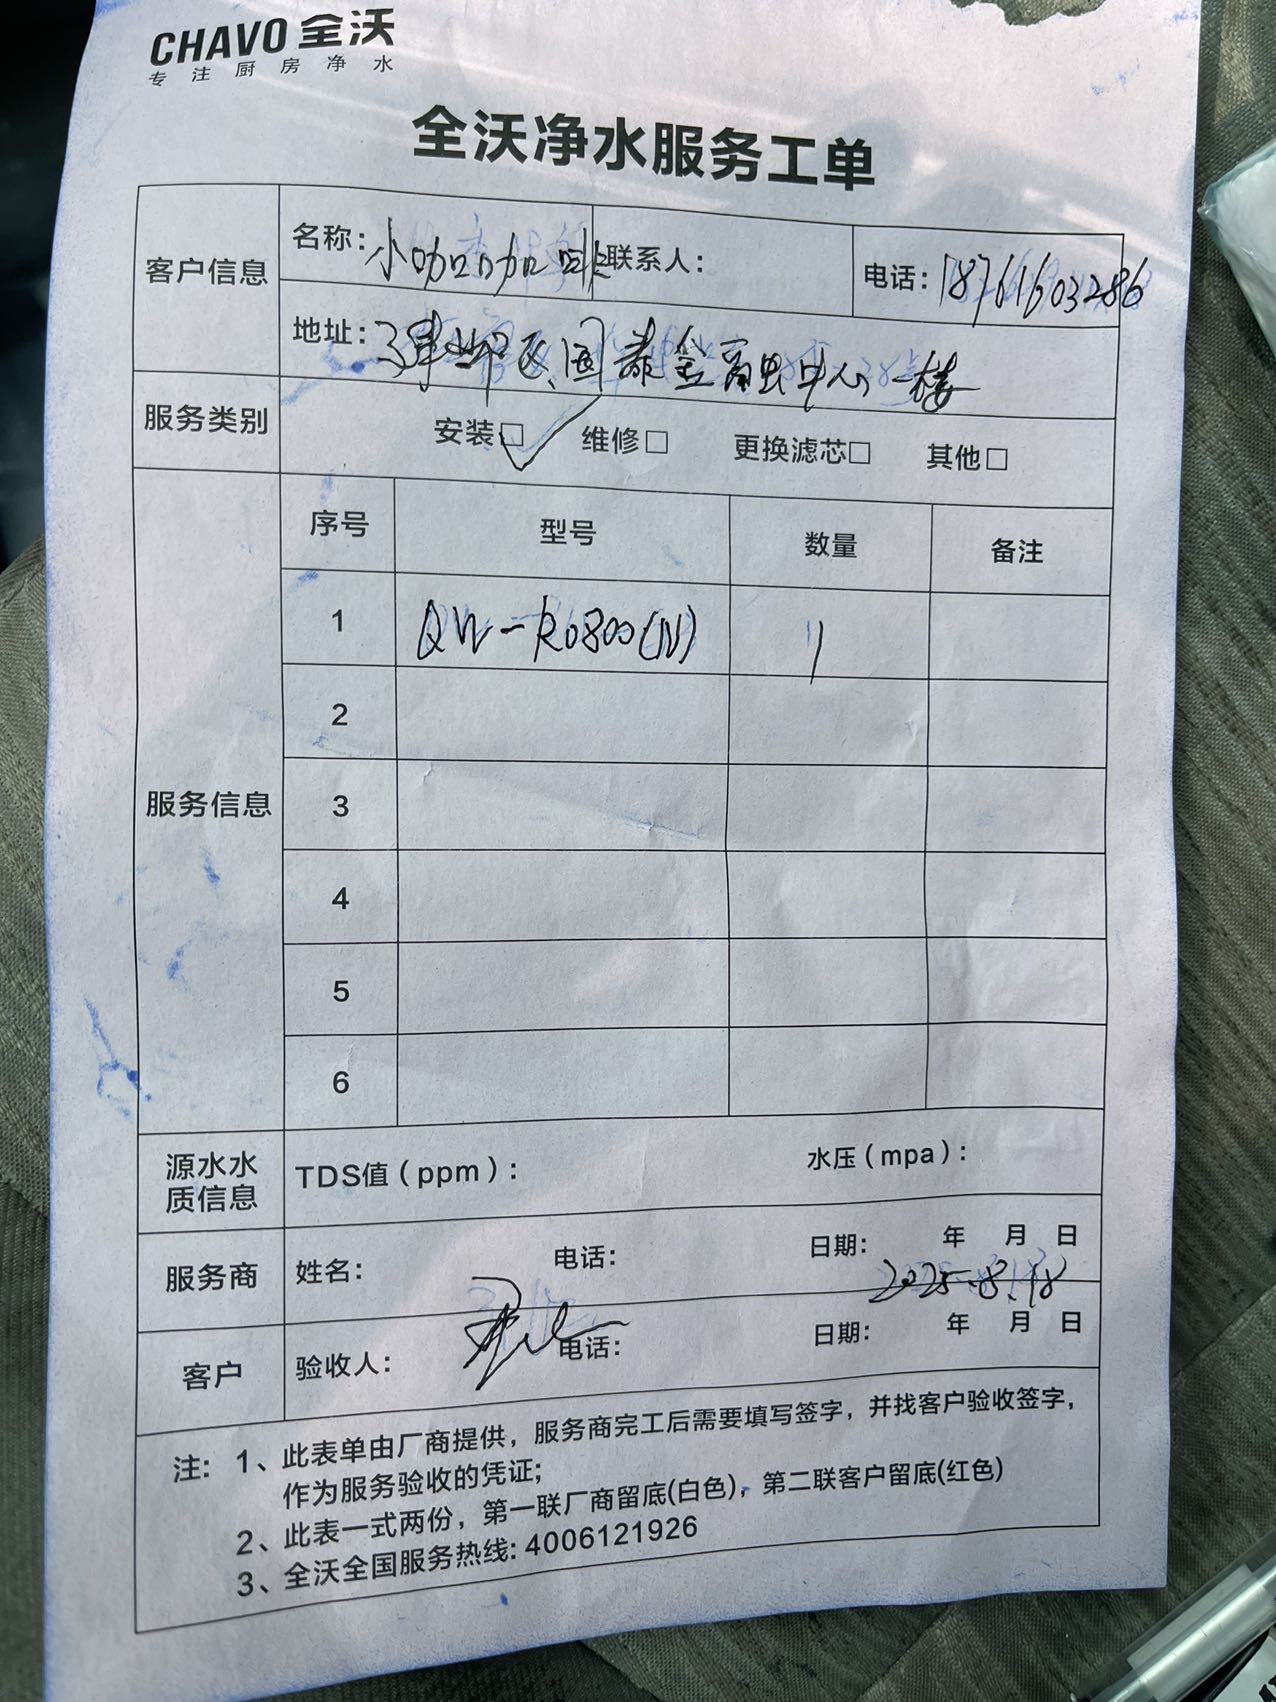 CHAVO 全沃
专注厨房净水
全沃净水服务工单
客户信息
名称：小咖咖啡 联系人： 电话：18761603286
地址： 区国泰金融中心一楼
服务类别 安装□✓ 维修□ 更换滤芯□ 其他□
服务信息
序号 型号 数量 备注
1 QW-RO800(N) 1
2
3
4
5
6
源水水质信息 TDS值（ppm）： 水压（mpa）：
服务商 姓名： 电话： 日期： 年 月 日
2025.8.18
客户 验收人： 电话： 日期： 年 月 日
注： 1、此表单由厂商提供，服务商完工后需要填写签字，并找客户验收签字，
作为服务验收的凭证；
2、此表一式两份，第一联厂商留底(白色)，第二联客户留底(红色)
3、全沃全国服务热线: 4006121926